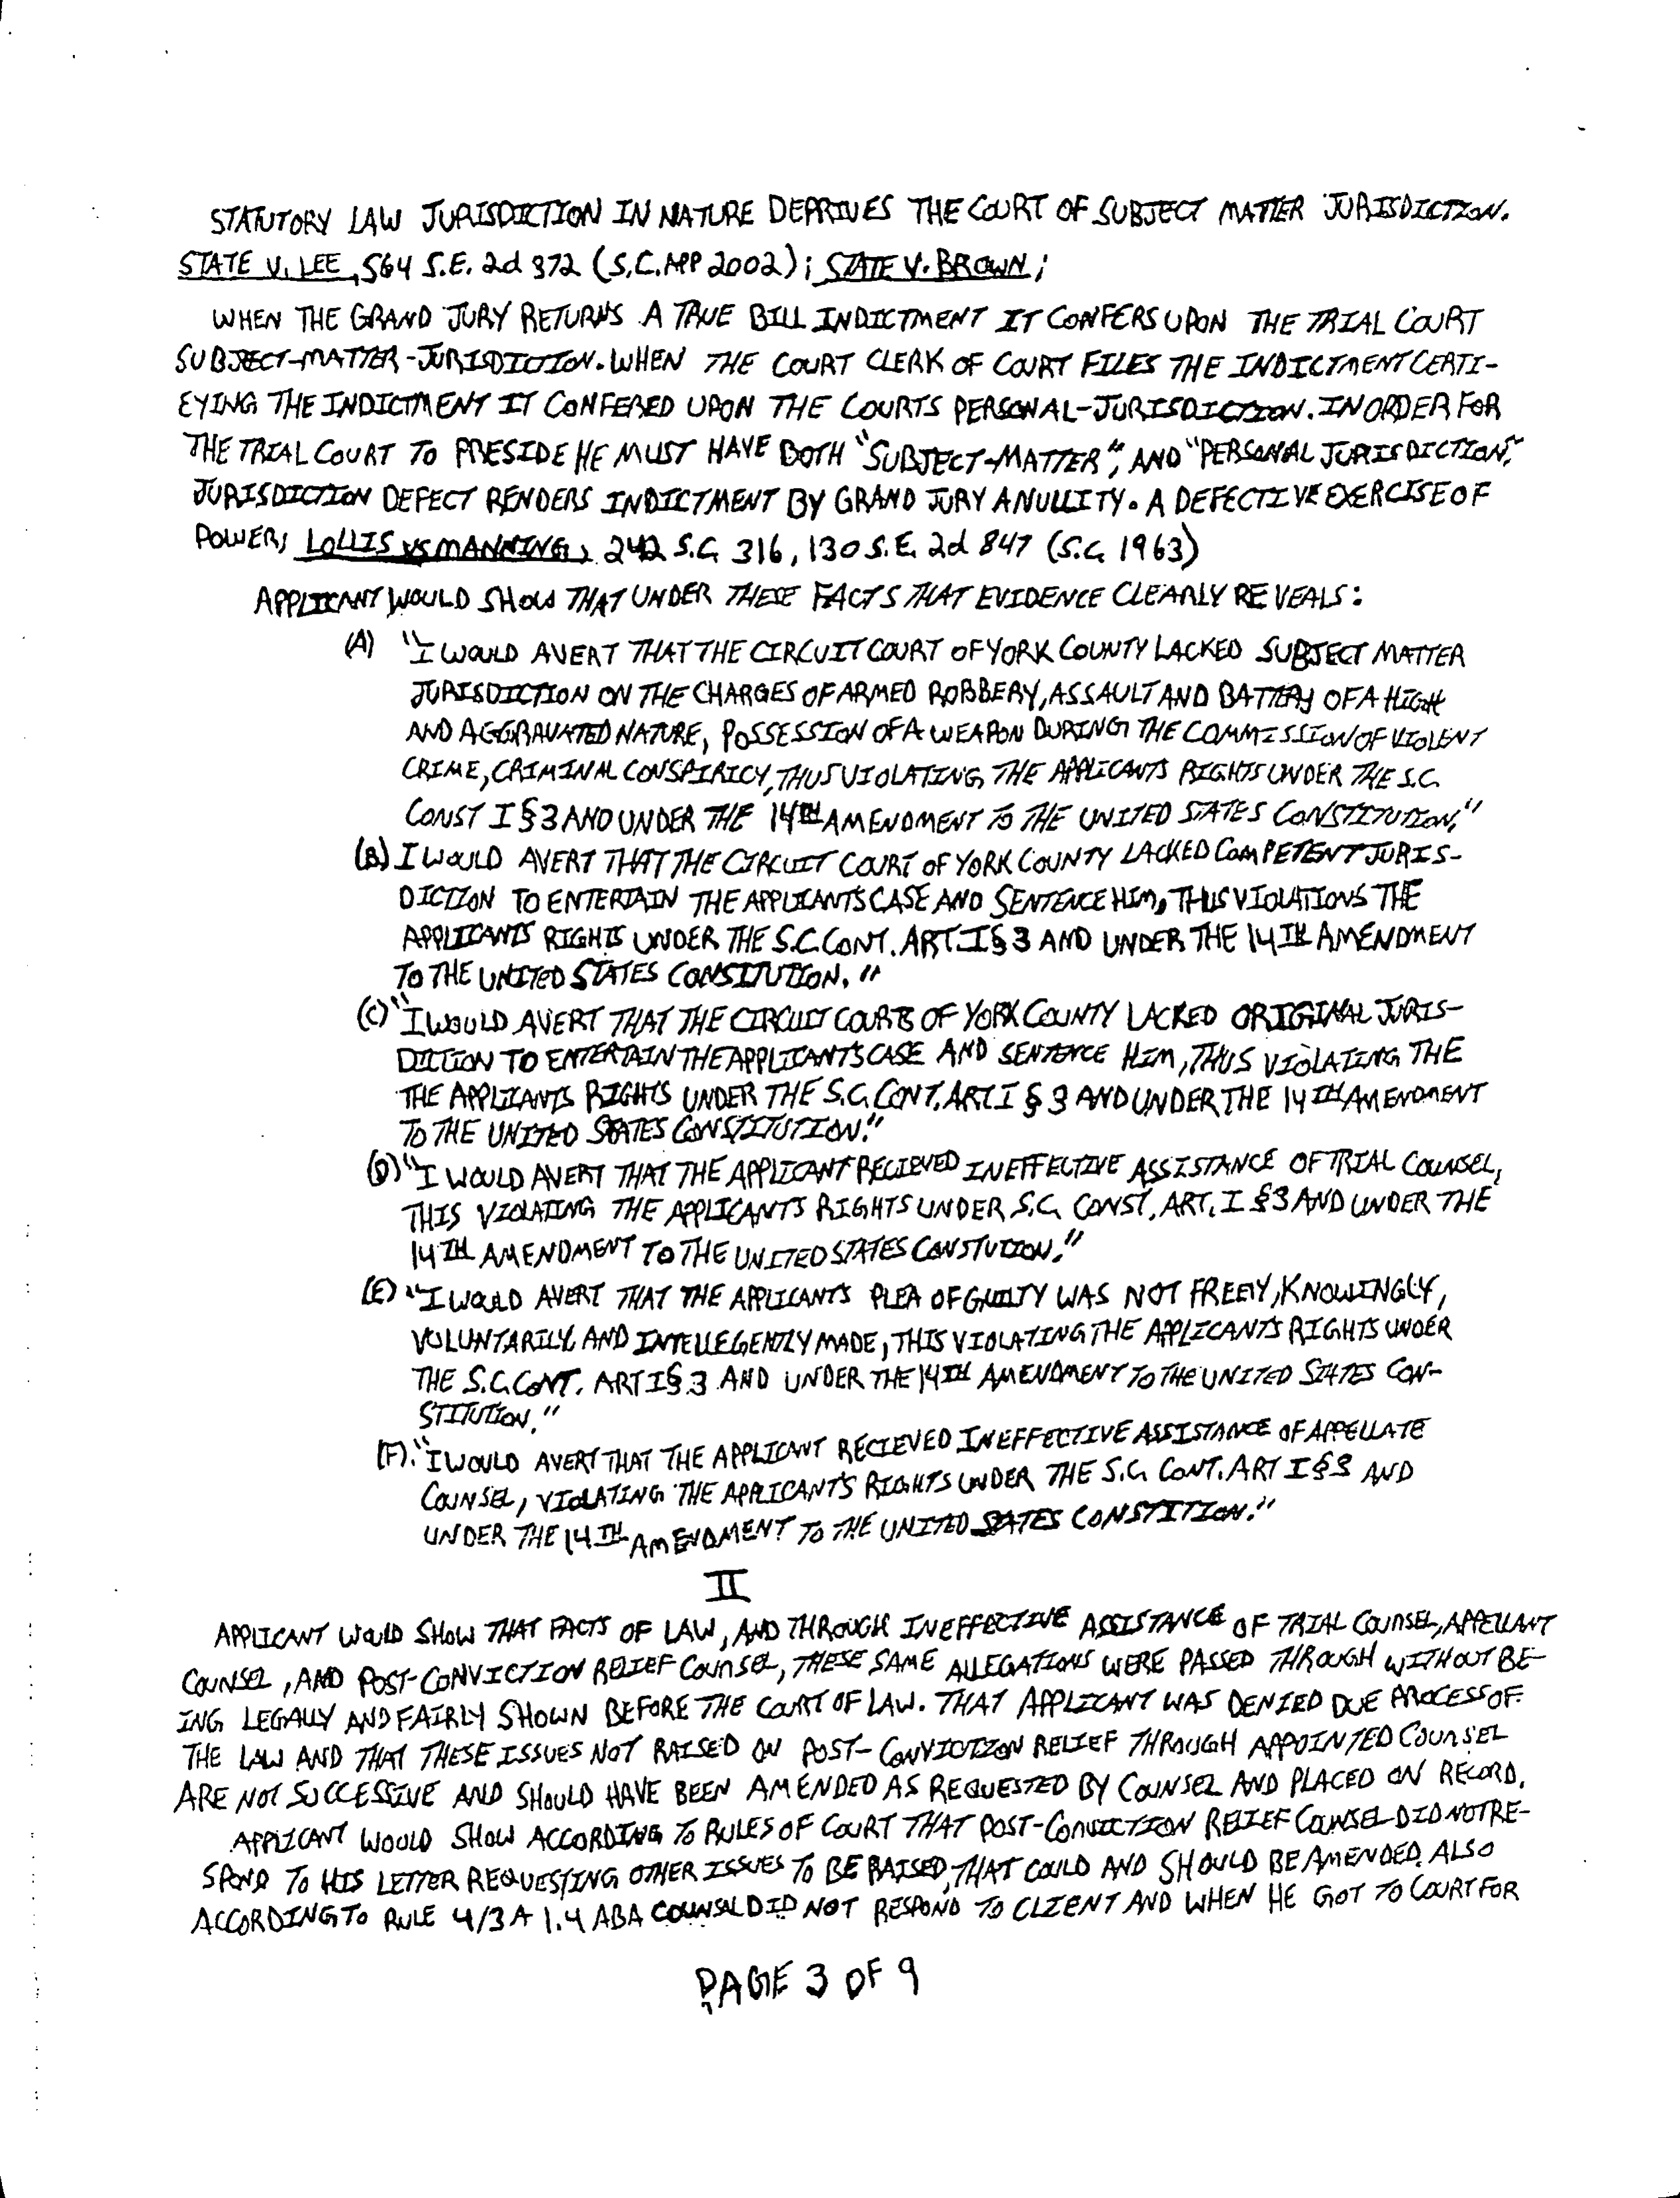 STATUTORY LAW JURISDICTION IN NATURE DEPRIVES THE COURT OF SUBJECT MATTER JURISDICTION.
STATE V. LEE, 564 S.E. 2d 372 (S.C. APP 2002); STATE V. BROWN;
WHEN THE GRAND JURY RETURNS A TRUE BILL INDICTMENT IT CONFERS UPON THE TRIAL COURT
SUBJECT-MATTER-JURISDICTION. WHEN THE COURT CLERK OF COURT FILES THE INDICTMENT CERTI-
EYING THE INDICTMENT IT CONFERED UPON THE COURTS PERSONAL-JURISDICTION. IN ORDER FOR
THE TRIAL COURT TO PRESIDE HE MUST HAVE BOTH "SUBJECT-MATTER", AND "PERSONAL JURISDICTION,"
JURISDICTION DEFECT RENDERS INDICTMENT BY GRAND JURY A NULLITY. A DEFECTIVE EXERCISE OF
POWER; LOLLIS VS MANNING, 242 S.C. 316, 130 S.E. 2d 847 (S.C. 1963)
APPLICANT WOULD SHOW THAT UNDER THESE FACTS THAT EVIDENCE CLEARLY REVEALS:
(A) "I WOULD AVERT THAT THE CIRCUIT COURT OF YORK COUNTY LACKED SUBJECT MATTER
JURISDICTION ON THE CHARGES OF ARMED ROBBERY, ASSAULT AND BATTERY OF A HIGH
AND AGGRAVATED NATURE, POSSESSION OF A WEAPON DURING THE COMMISSION OF VIOLENT
CRIME, CRIMINAL CONSPIRICY, THUS VIOLATING THE APPLICANTS RIGHTS UNDER THE S.C.
CONST I § 3 AND UNDER THE 14TH AMENDMENT TO THE UNITED STATES CONSTITUTION."
(B) I WOULD AVERT THAT THE CIRCUIT COURT OF YORK COUNTY LACKED COMPETENT JURIS-
DICTION TO ENTERTAIN THE APPLICANT'S CASE AND SENTENCE HIM, THUS VIOLATIONS THE
APPLICANTS RIGHTS UNDER THE S.C. CONT. ART. I § 3 AND UNDER THE 14TH AMENDMENT
TO THE UNITED STATES CONSTITUTION."
(C) "I WOULD AVERT THAT THE CIRCUIT COURTS OF YORK COUNTY LACKED ORIGINAL JURIS-
DICTION TO ENTERTAIN THE APPLICANT'S CASE AND SENTENCE HIM, THUS VIOLATING THE
THE APPLICANTS RIGHTS UNDER THE S.C. CONT. ART I § 3 AND UNDER THE 14TH AMENDMENT
TO THE UNITED STATES CONSTITUTION."
(D) "I WOULD AVERT THAT THE APPLICANT RECIEVED INEFFECTIVE ASSISTANCE OF TRIAL COUNSEL,
THIS VIOLATING THE APPLICANTS RIGHTS UNDER S.C. CONST. ART. I § 3 AND UNDER THE
14TH AMENDMENT TO THE UNITED STATES CONSTUTION."
(E) "I WOULD AVERT THAT THE APPLICANTS PLEA OF GUILTY WAS NOT FREELY, KNOWINGLY,
VOLUNTARILY AND INTELLEGENTLY MADE, THIS VIOLATING THE APPLICANTS RIGHTS UNDER
THE S.C. CONT. ART I § 3 AND UNDER THE 14TH AMENDMENT TO THE UNITED STATES CON-
STITUTION."
(F). "I WOULD AVERT THAT THE APPLICANT RECIEVED INEFFECTIVE ASSISTANCE OF APPELLATE
COUNSEL, VIOLATING THE APPLICANT'S RIGHTS UNDER THE S.C. CONT. ART I § 3 AND
UNDER THE 14TH AMENDMENT TO THE UNITED STATES CONSTITION."
II
APPLICANT WOULD SHOW THAT FACTS OF LAW, AND THROUGH INEFFECTIVE ASSISTANCE OF TRIAL COUNSEL, APPELLANT
COUNSEL, AND POST-CONVICTION RELIEF COUNSEL, THESE SAME ALLEGATIONS WERE PASSED THROUGH WITHOUT BE-
ING LEGALLY AND FAIRLY SHOWN BEFORE THE COURT OF LAW. THAT APPLICANT WAS DENIED DUE PROCESS OF
THE LAW AND THAT THESE ISSUES NOT RAISED ON POST-CONVICTION RELIEF THROUGH APPOINTED COUNSEL
ARE NOT SUCCESSIVE AND SHOULD HAVE BEEN AMENDED AS REQUESTED BY COUNSEL AND PLACED ON RECORD.
APPLICANT WOULD SHOW ACCORDING TO RULES OF COURT THAT POST-CONVICTION RELIEF COUNSEL DID NOT RE-
SPOND TO HIS LETTER REQUESTING OTHER ISSUES TO BE RAISED, THAT COULD AND SHOULD BE AMENDED. ALSO
ACCORDING TO RULE 4/3 A 1.4 ABA COUNSAL DID NOT RESPOND TO CLIENT AND WHEN HE GOT TO COURT FOR
PAGE 3 OF 9